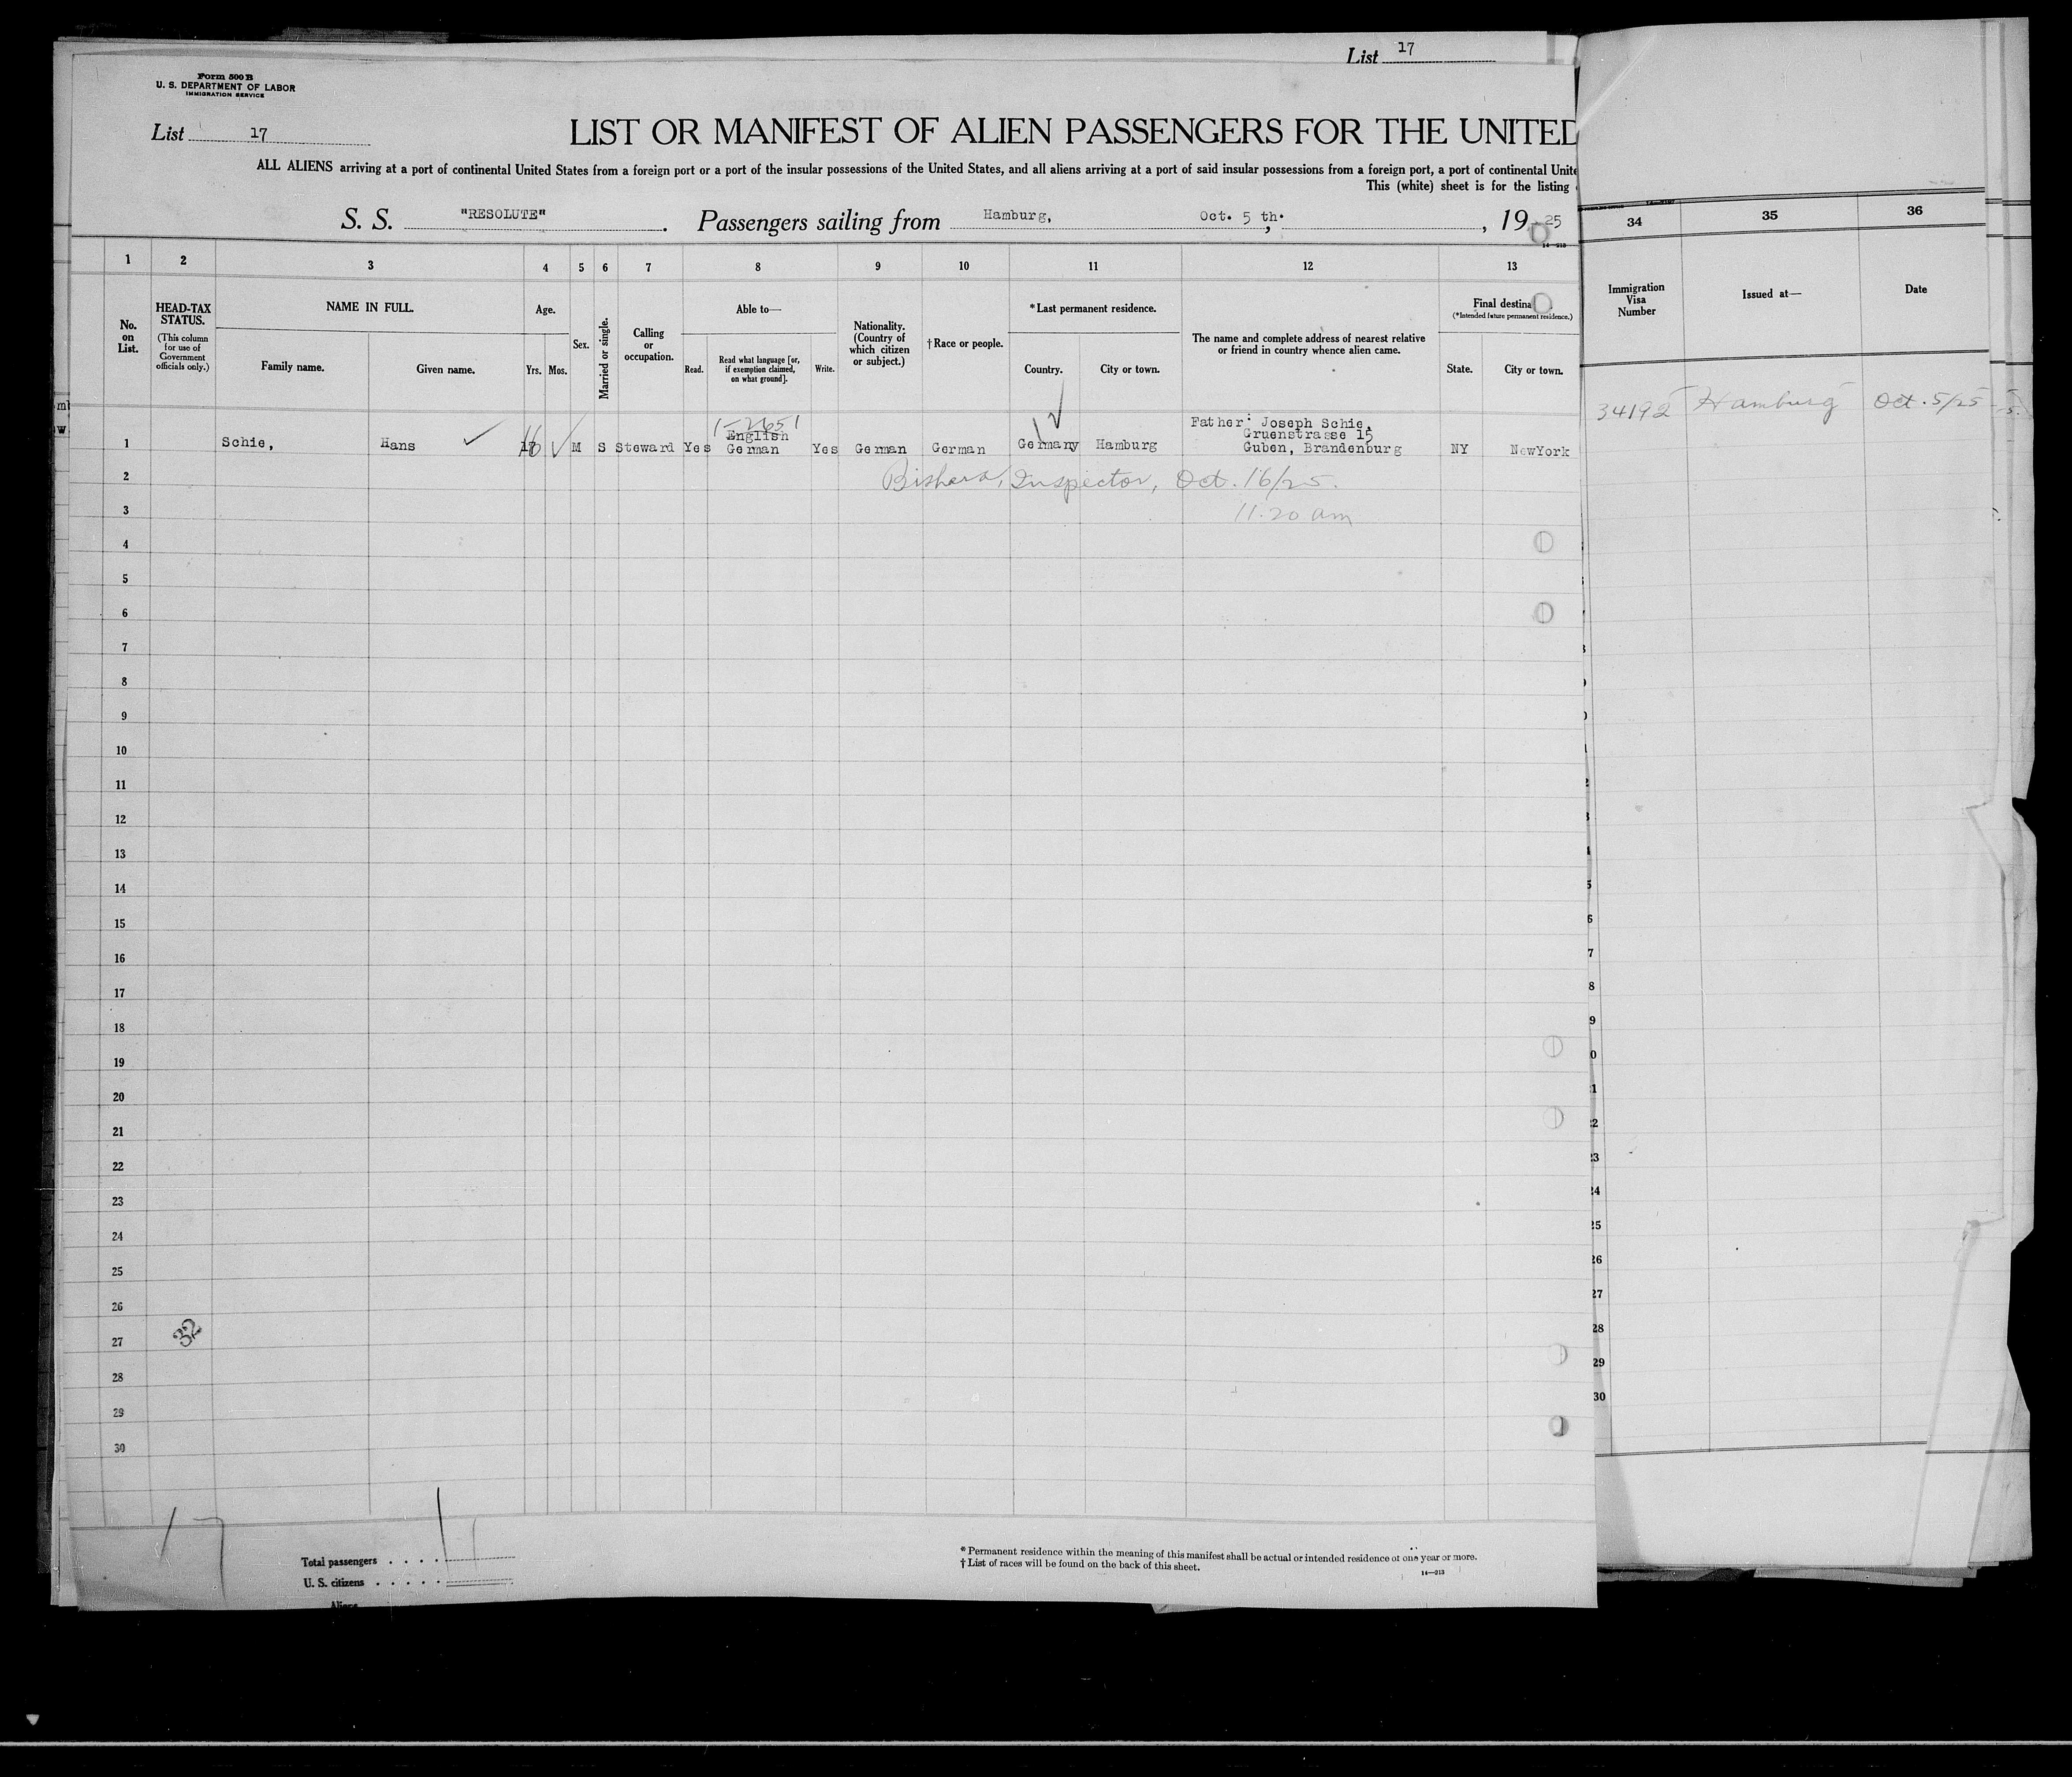 List 17
Form 500 B
U. S. DEPARTMENT OF LABOR
IMMIGRATION SERVICE
List 17
LIST OR MANIFEST OF ALIEN PASSENGERS FOR THE UNITED
ALL ALIENS arriving at a port of continental United States from a foreign port or a port of the insular possessions of the United States, and all aliens arriving at a port of said insular possessions from a foreign port, a port of continental Unite
This (white) sheet is for the listing
S. S. "RESOLUTE". Passengers sailing from Hamburg, Oct. 5 th. , 1925
14—213
1 2 3 4 5 6 7 8 9 10 11 12 13
34 35 36
No. on List.
HEAD-TAX STATUS.
(This column for use of Government officials only.)
NAME IN FULL.
Family name. Given name.
Age.
Yrs. Mos.
Sex.
Married or single.
Calling or occupation.
Able to—
Read. Read what language [or, if exemption claimed, on what ground]. Write.
Nationality. (Country of which citizen or subject.)
†Race or people.
*Last permanent residence.
Country. City or town.
The name and complete address of nearest relative or friend in country whence alien came.
Final destina
(*Intended future permanent residence.)
State. City or town.
Immigration Visa Number
Issued at—
Date
34192 Hamburg Oct. 5/25
1-2651
English
Father: Joseph Schie,
Gruenstrasse 15
1 Schie, Hans 16 M S Steward Yes German Yes German German Germany Hamburg Guben, Brandenburg NY NewYork
2 Inspector, Oct. 16/25.
3 11.20 am
4
5
6
7
8
9
10
11
12
13
14
15
16
17
18
19
20
21
22
23
24
25
26
27
32
28
29
30
6
7
8
9
0
1
2
23
24
25
26
27
28
29
30
17
Total passengers . . . .
U. S. citizens . . . . .
Aliens
* Permanent residence within the meaning of this manifest shall be actual or intended residence of one year or more.
† List of races will be found on the back of this sheet.
14—213